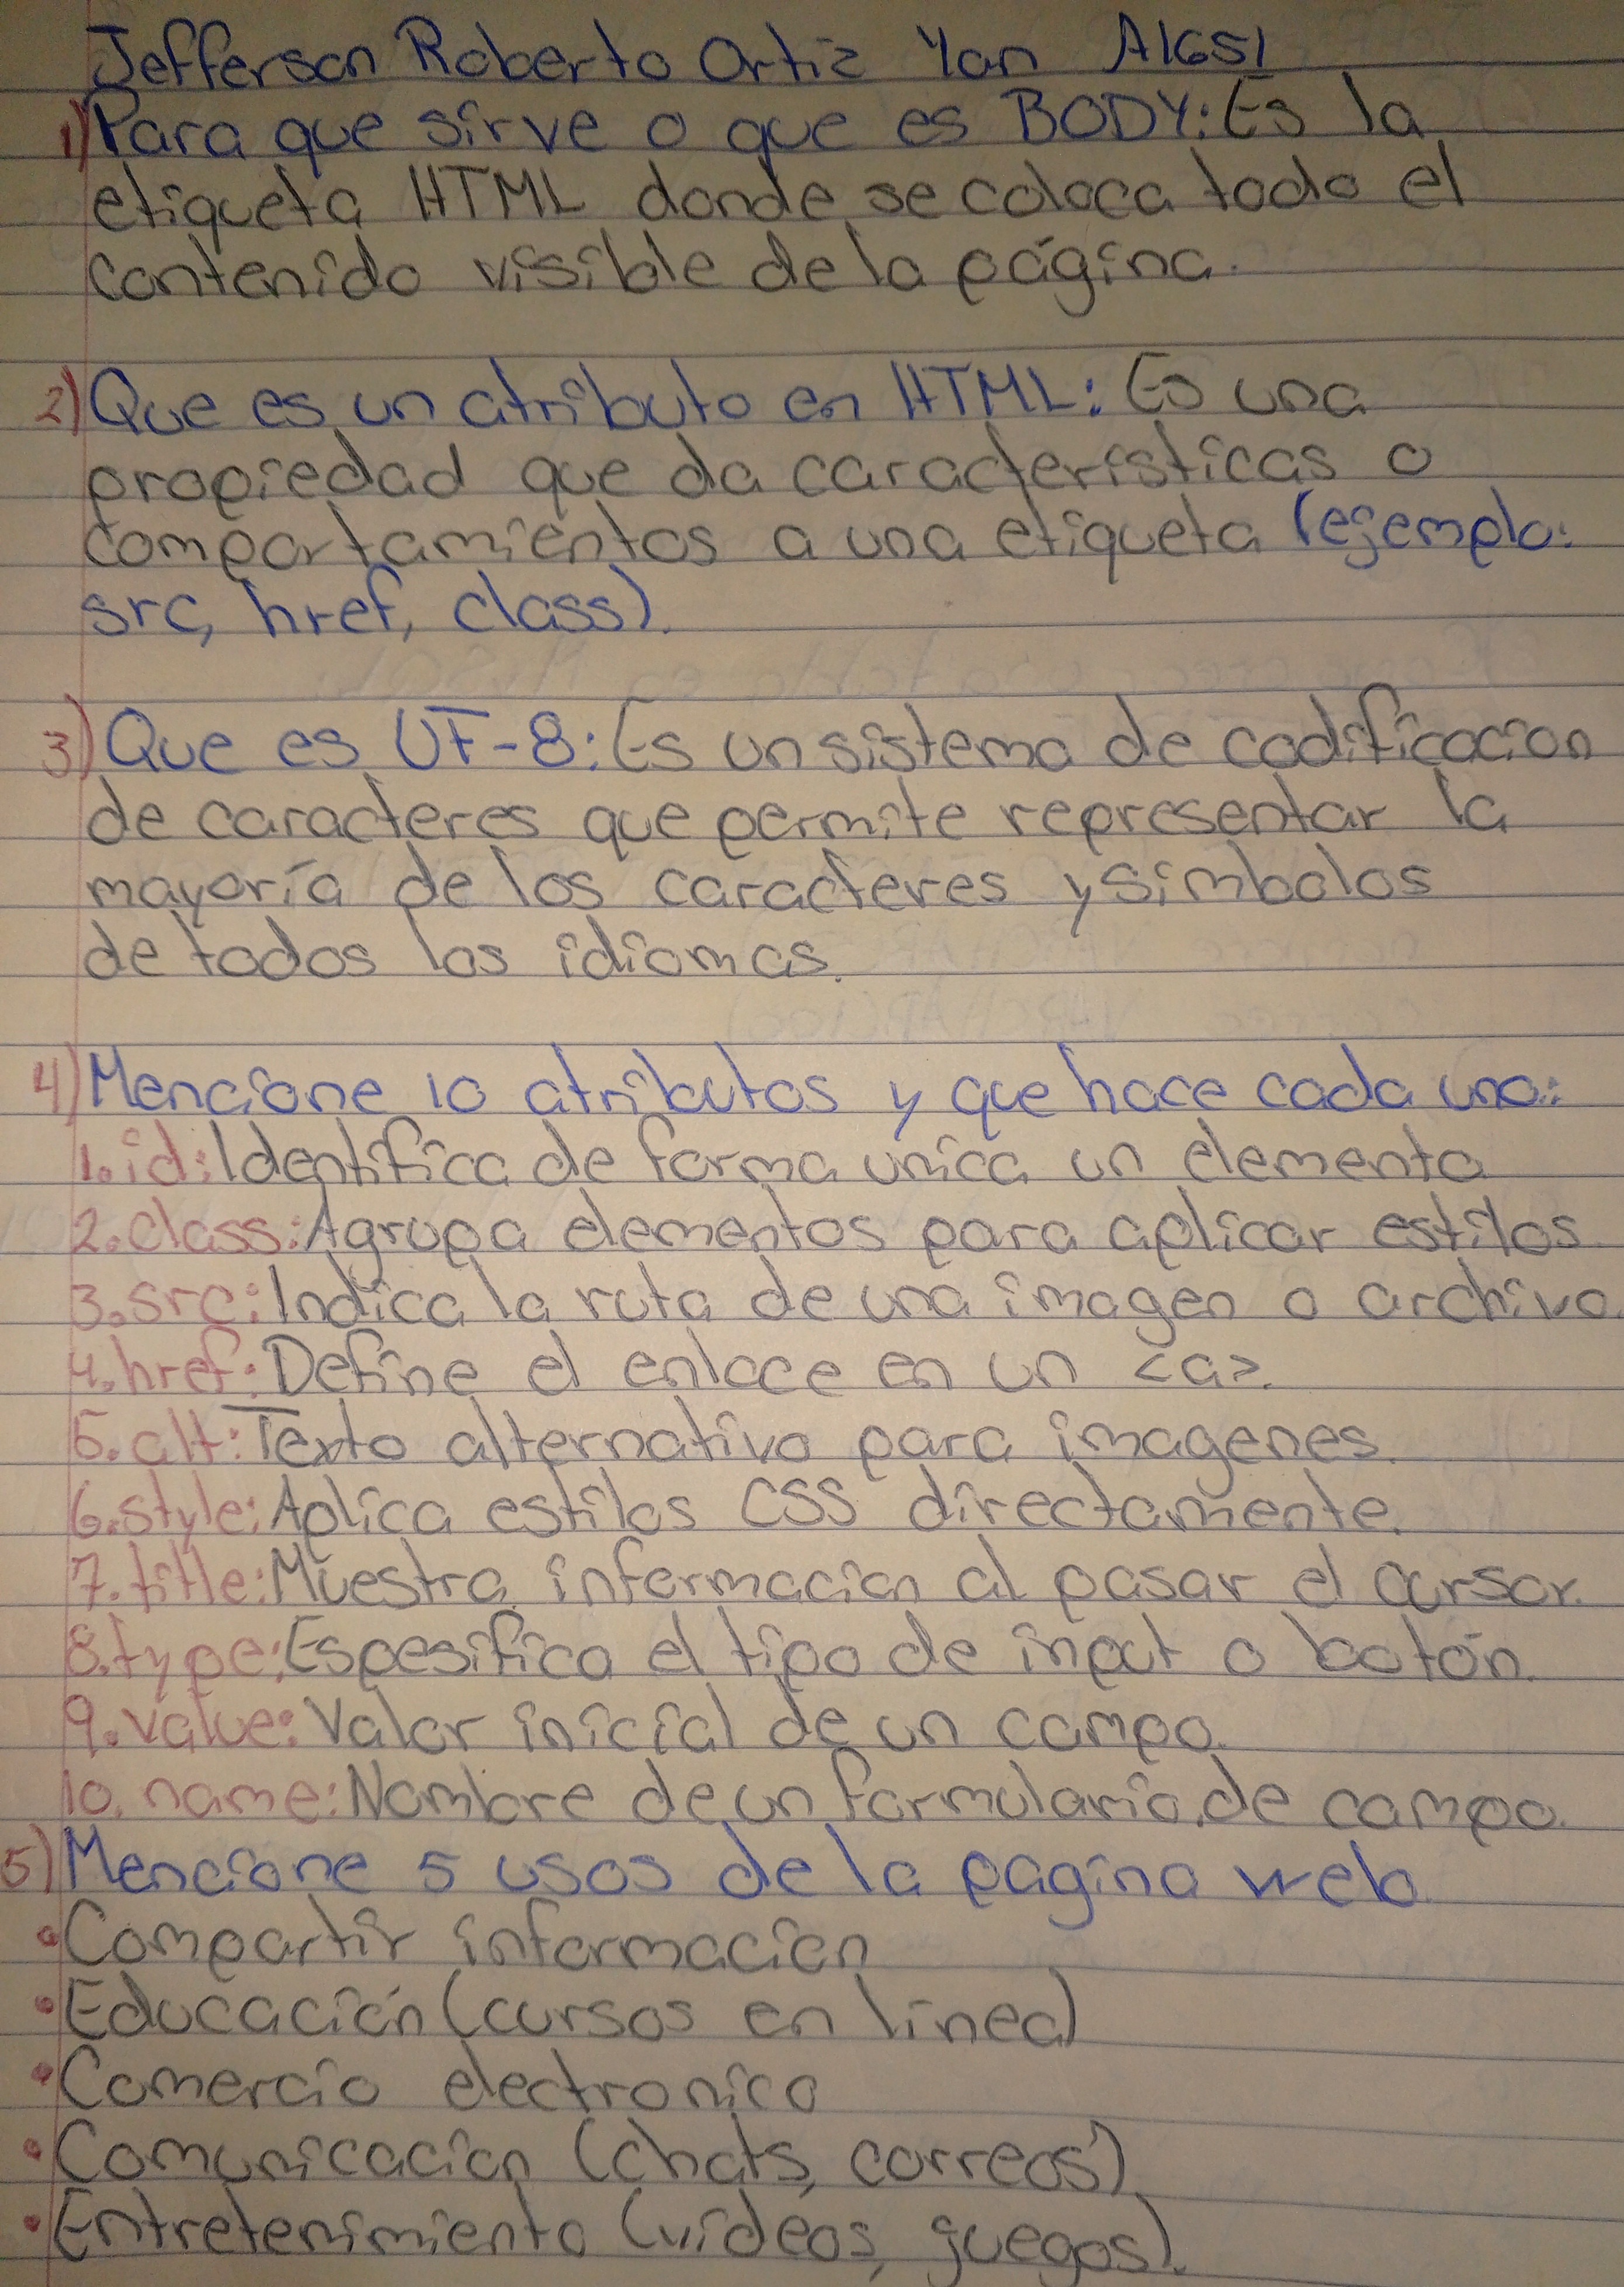 Jefferson Roberto Ortiz Yan A1651
1) Para que sirve o que es BODY: Es la
etiqueta HTML donde se coloca todo el
contenido visible de la página.
2) Que es un atributo en HTML: Es una
propiedad que da características o
comportamientos a una etiqueta (ejemplo:
src, href, class).
3) Que es UF-8: Es un sistema de codificacion
de caracteres que permite representar la
mayoría de los caracteres y simbolos
de todos los idiomas.
4) Mencione 10 atributos y que hace cada uno:
1. id: Identifica de forma unica un elemento
2. class: Agrupa elementos para aplicar estilos
3. src: Indica la ruta de una imagen o archivo.
4. href: Define el enlace en un <a>.
5. alt: Texto alternativo para imagenes.
6. style: Aplica estilos CSS directamente.
7. title: Muestra información al pasar el cursor.
8. type: Espesifica el tipo de input o botón.
9. value: Valor inicial de un campo.
10. name: Nombre de un formulario, de campo.
5) Mencione 5 usos de la pagina web
• Compartir información
• Educación (cursos en linea)
• Comercio electronico
• Comunicación (chats, correos)
• Entretenimiento (videos, juegos).